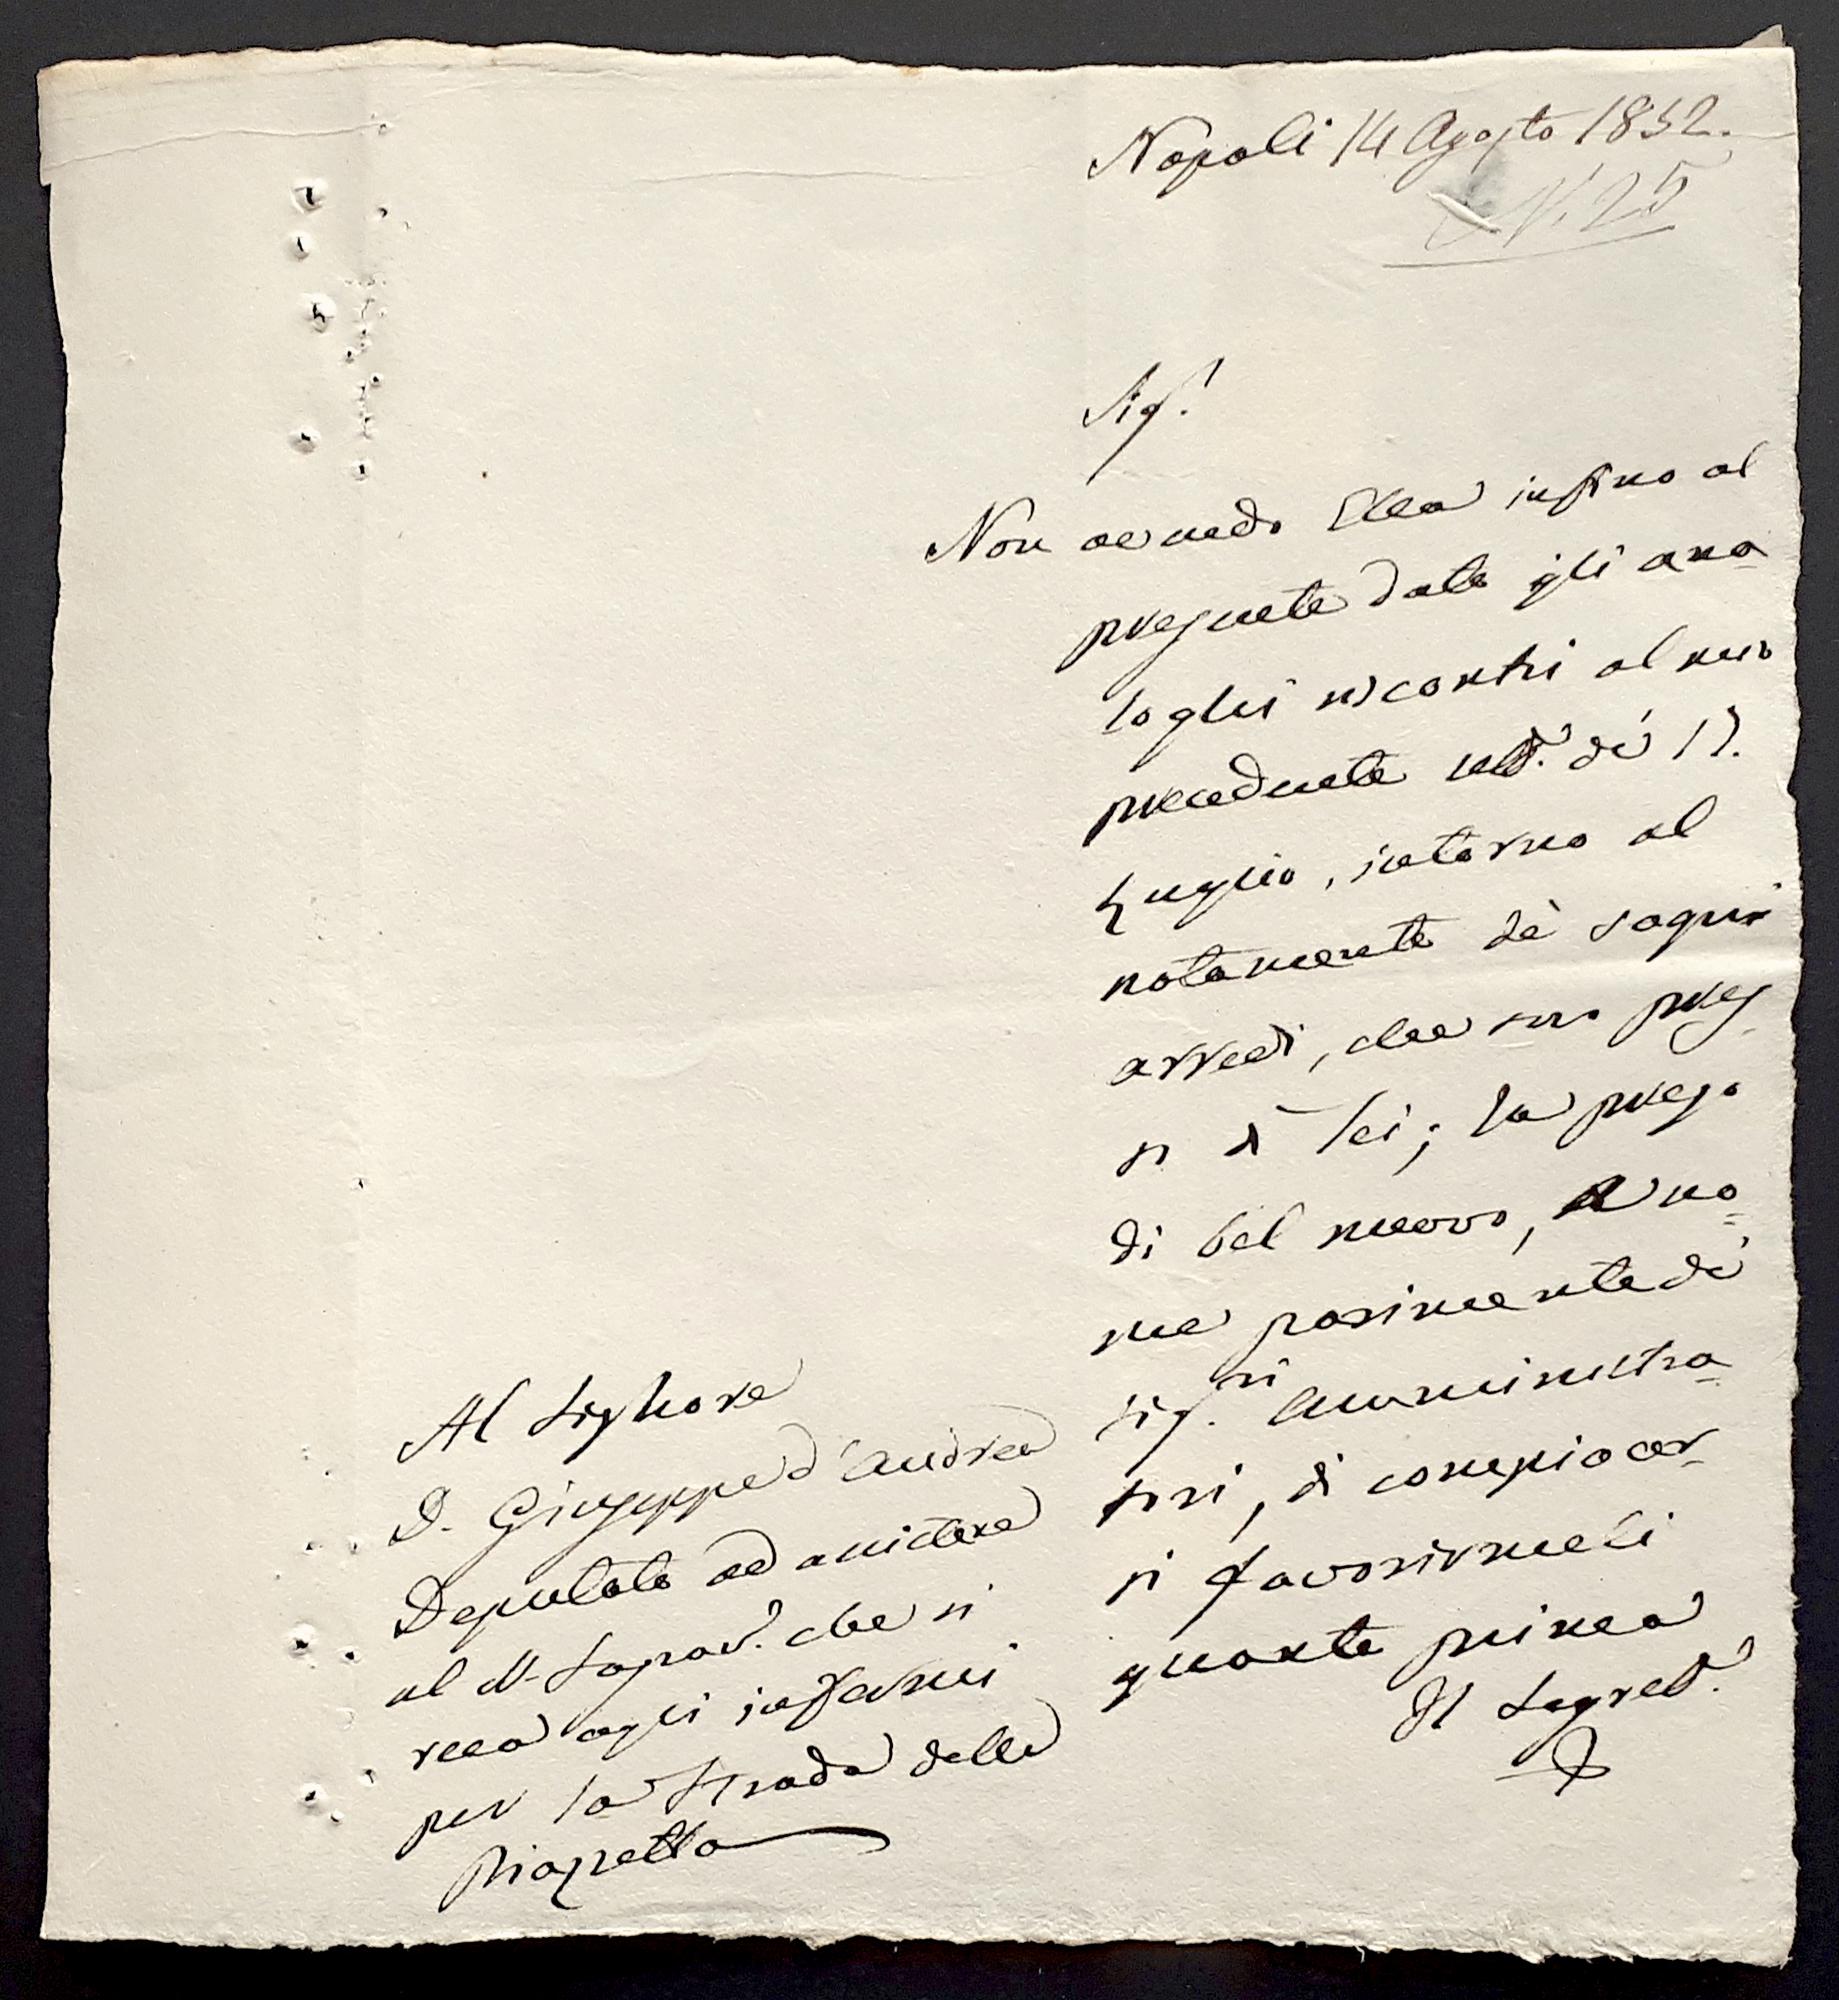 Napoli 14 Agosto 1852.
N. 25
Sig.r
Non avendo Ella infino al
presente dato gli ana-
loghi riscontri al mio
precedente uff.o di 17.
Luglio, intorno al
notamento de' sagri
arredi, che sono pres-
so di lei; la prego
di bel nuovo, a no-
me parimente de'
Sig.ri Amministra-
tori, di compiacer-
si favorirmeli
quanto prima
Il Segret.o
Al Signore
D. Giuseppe d'Andrea
Deputato ad assistere
al M. Sagrad. che si
reca agli infermi
per la Strada della
Piazzetta